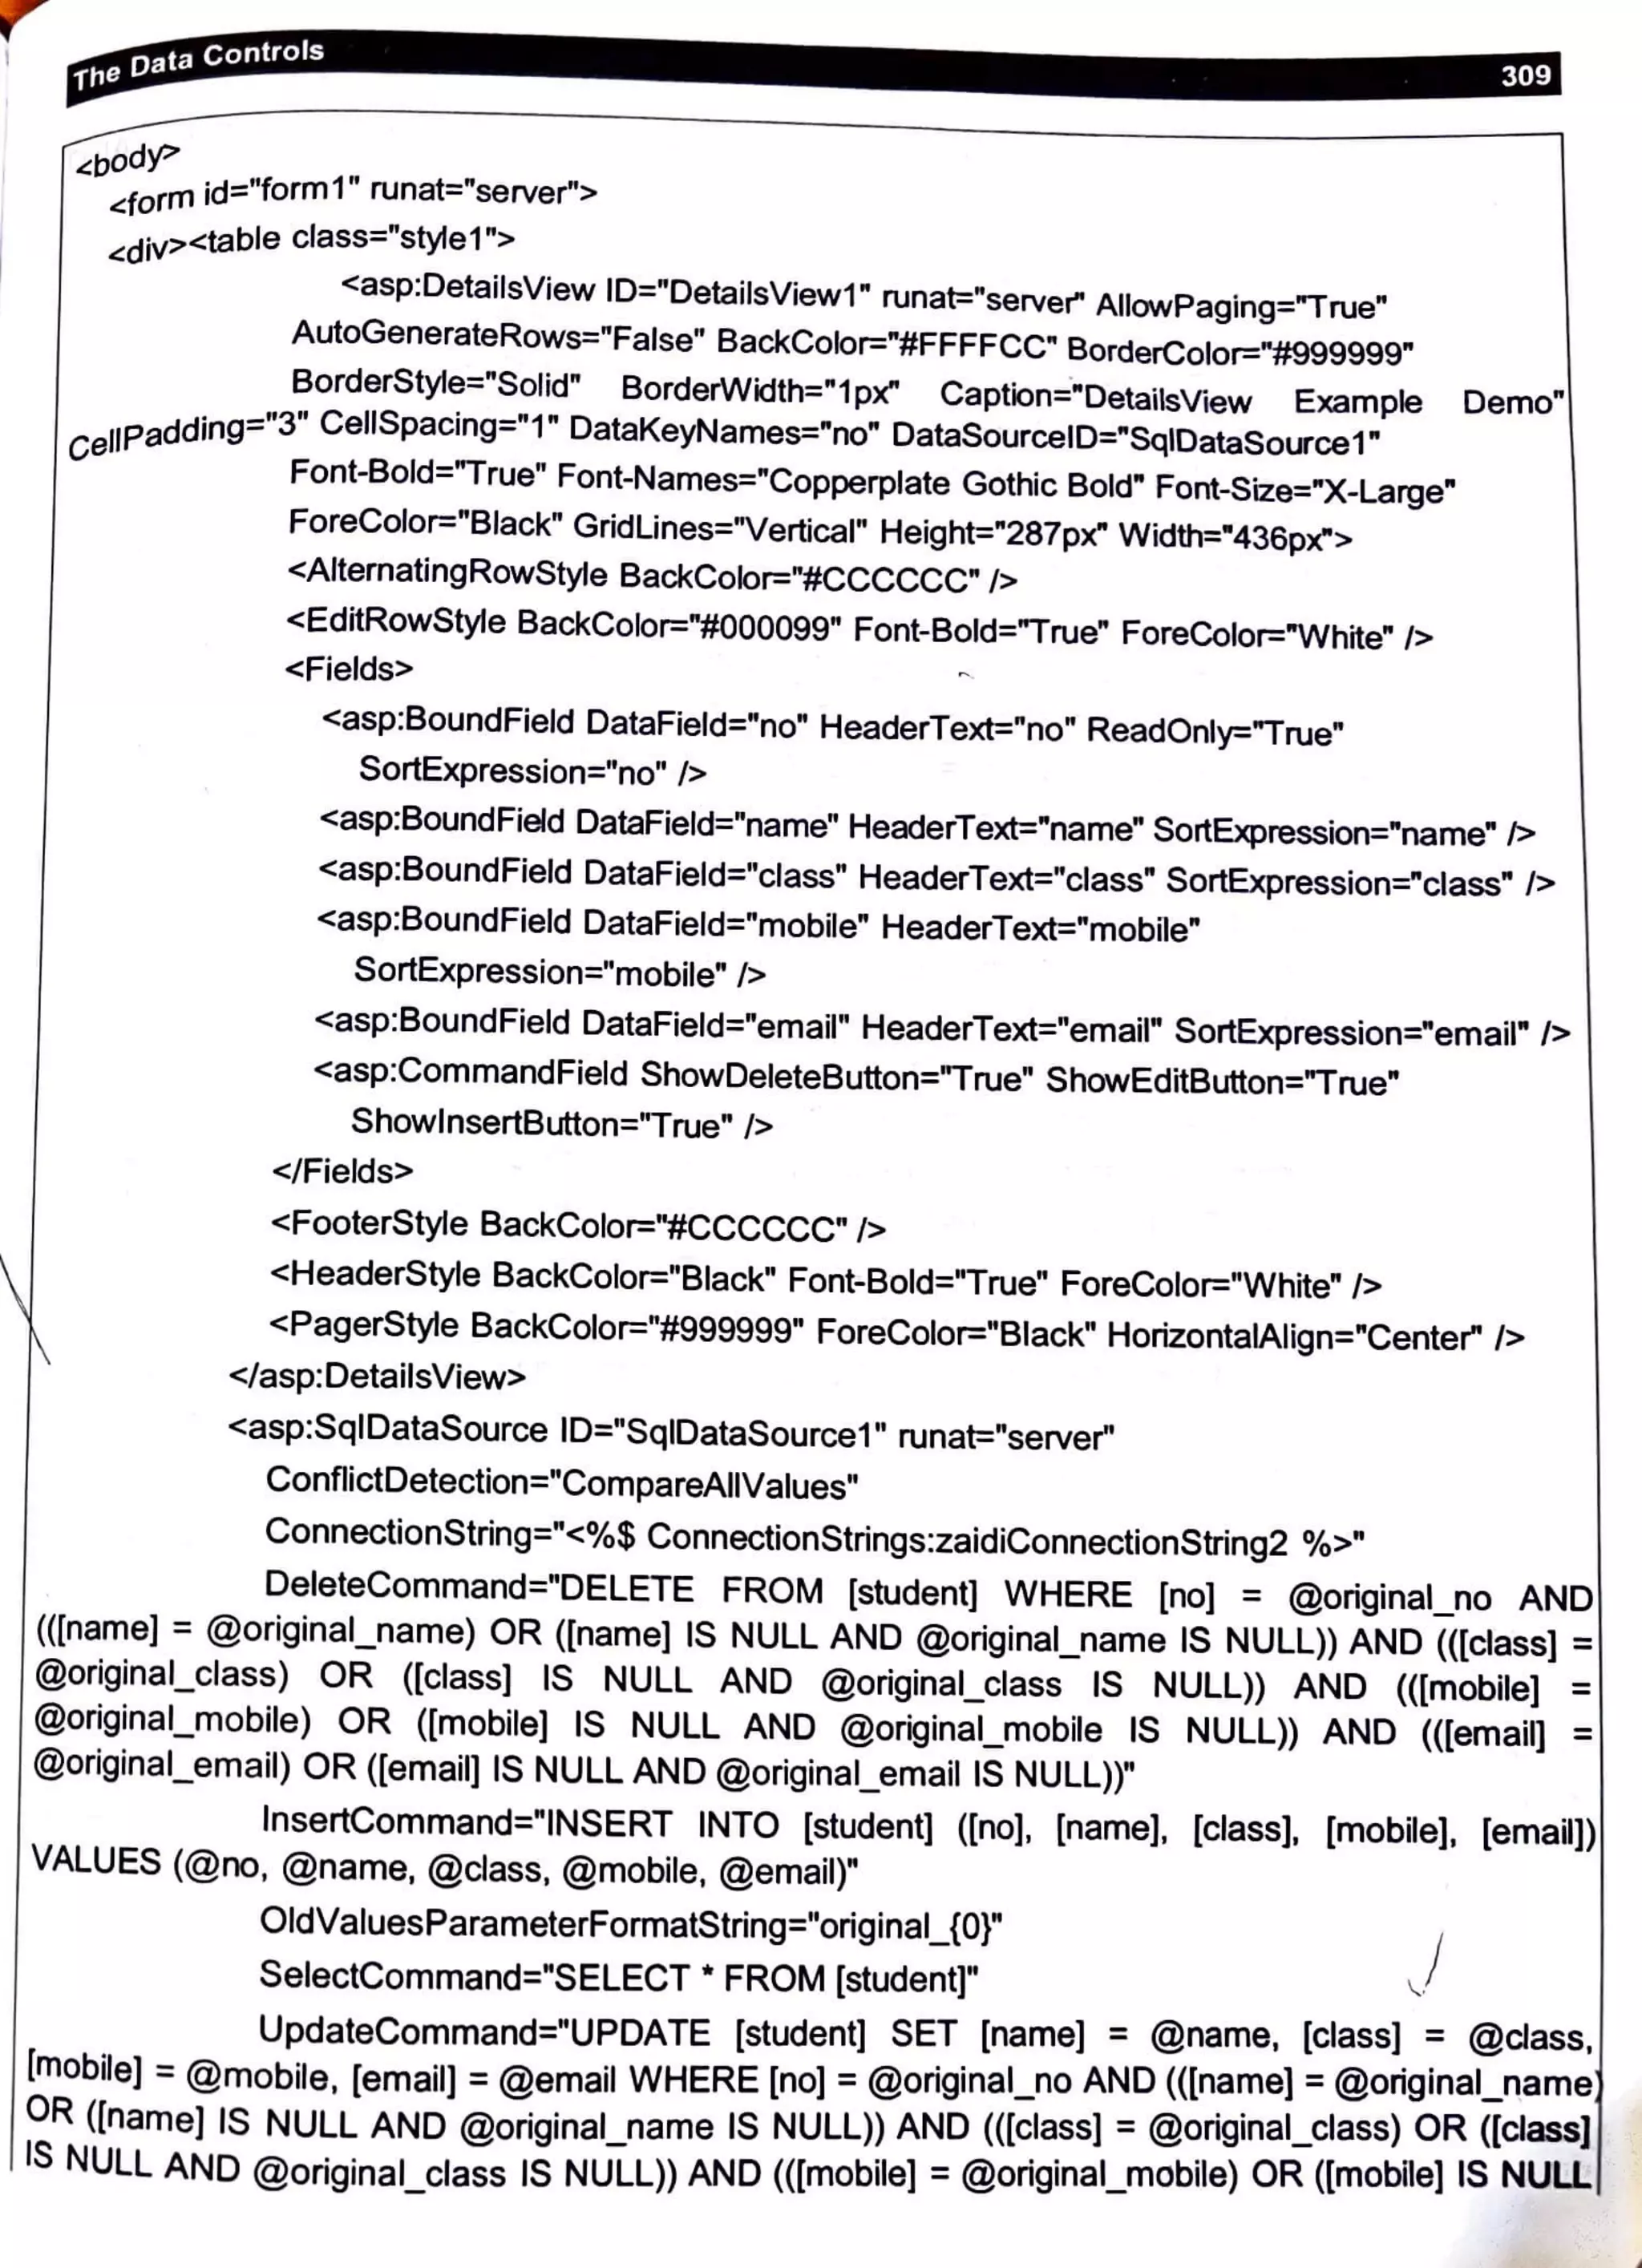 The Data Controls
309
<body>
<form id="form1" runat="server">
<div><table class="style1">
<asp:DetailsView ID="DetailsView1" runat="server" AllowPaging="True"
AutoGenerateRows="False" BackColor="#FFFFCC" BorderColor="#999999"
BorderStyle="Solid" BorderWidth="1px" Caption="DetailsView Example Demo"
CellPadding="3" CellSpacing="1" DataKeyNames="no" DataSourceID="SqlDataSource1"
Font-Bold="True" Font-Names="Copperplate Gothic Bold" Font-Size="X-Large"
ForeColor="Black" GridLines="Vertical" Height="287px" Width="436px">
<AlternatingRowStyle BackColor="#CCCCCC" />
<EditRowStyle BackColor="#000099" Font-Bold="True" ForeColor="White" />
<Fields>
<asp:BoundField DataField="no" HeaderText="no" ReadOnly="True"
SortExpression="no" />
<asp:BoundField DataField="name" HeaderText="name" SortExpression="name" />
<asp:BoundField DataField="class" HeaderText="class" SortExpression="class" />
<asp:BoundField DataField="mobile" HeaderText="mobile"
SortExpression="mobile" />
<asp:BoundField DataField="email" HeaderText="email" SortExpression="email" />
<asp:CommandField ShowDeleteButton="True" ShowEditButton="True"
ShowInsertButton="True" />
</Fields>
<FooterStyle BackColor="#CCCCCC" />
<HeaderStyle BackColor="Black" Font-Bold="True" ForeColor="White" />
<PagerStyle BackColor="#999999" ForeColor="Black" HorizontalAlign="Center" />
</asp:DetailsView>
<asp:SqlDataSource ID="SqlDataSource1" runat="server"
ConflictDetection="CompareAllValues"
ConnectionString="<%$ ConnectionStrings:zaidiConnectionString2 %>"
DeleteCommand="DELETE FROM [student] WHERE [no] = @original_no AND
(([name] = @original_name) OR ([name] IS NULL AND @original_name IS NULL)) AND (([class] =
@original_class) OR ([class] IS NULL AND @original_class IS NULL)) AND (([mobile] =
@original_mobile) OR ([mobile] IS NULL AND @original_mobile IS NULL)) AND (([email] =
@original_email) OR ([email] IS NULL AND @original_email IS NULL))"
InsertCommand="INSERT INTO [student] ([no], [name], [class], [mobile], [email])
VALUES (@no, @name, @class, @mobile, @email)"
OldValuesParameterFormatString="original_{0}"
SelectCommand="SELECT * FROM [student]"
UpdateCommand="UPDATE [student] SET [name] = @name, [class] = @class,
[mobile] = @mobile, [email] = @email WHERE [no] = @original_no AND (([name] = @original_name)
OR ([name] IS NULL AND @original_name IS NULL)) AND (([class] = @original_class) OR ([class]
IS NULL AND @original_class IS NULL)) AND (([mobile] = @original_mobile) OR ([mobile] IS NULL